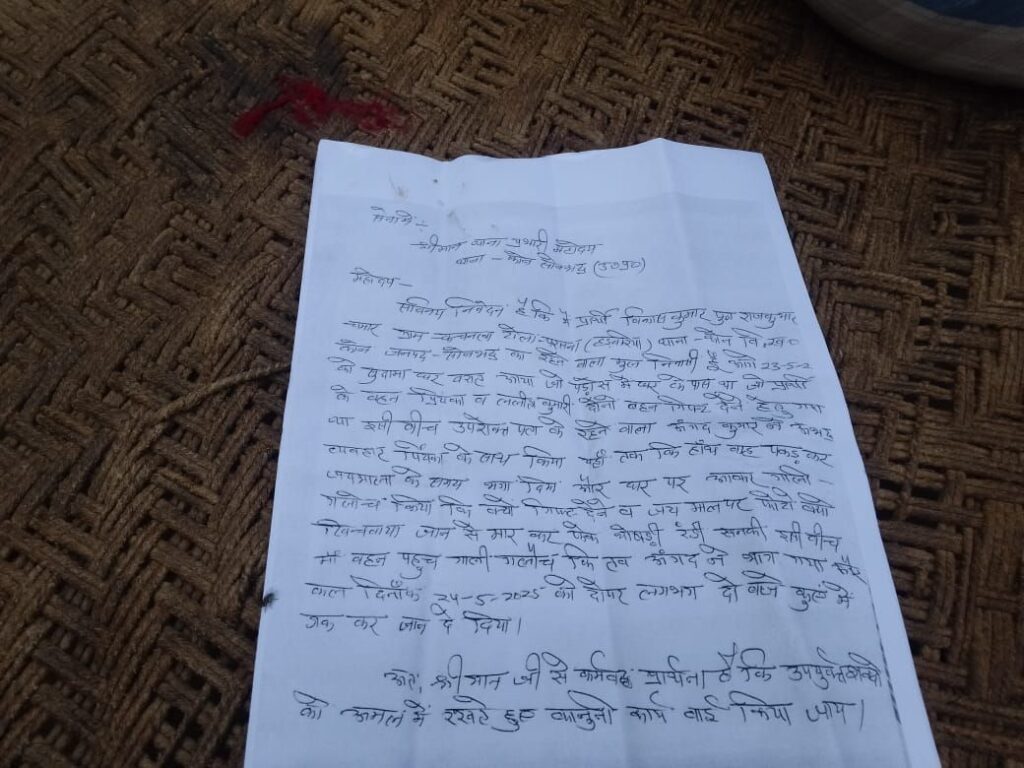 सेवामें :-
श्रीमान थाना प्रभारी महोदय
थाना - कोन सोनभद्र (उ०प्र०)
महोदय -
सविनय निवेदन है कि मै प्रार्थी विकास कुमार पुत्र राजकुमार
ग्राम टोला - थाना - कोन
कोन जनपद - सोनभद्र का रहने वाला मूल निवासी हूँ 23-5-2
को सुदामा घर बरात आया जो पड़ोस में घर के पास था जो प्रार्थी
के बहन प्रियंका व ललीता कुमारी दोनो बहन गिफ्ट देने हेतु गया
था इसी बीच उपरोक्त पता के रहने वाला अंगद कुमार ने अभद्र
व्यवहार प्रियंका के साथ किया यहाँ तक कि हाँथ बाह पकड़ कर
जयमाला के समय भगा दिया और घर पर आकार गाली -
गलौच किया कि क्यों गिफ्ट देने व जय माल पर फोटो क्यो
खिचवाया जान से मार कर फेक रंडी सनकी इसी बीच
माँ बहन पहुच गाली गलौच कि तब अंगद ने भाग गया और
कल दिनाँक 24-5-2025 को दोपर लगभग दो बजे कुएं में
कर जान दे दिया।
अतः श्रीमान जी से कर्मबद्ध प्रार्थना है कि उपर्युक्त
को अमल में रखते हुए कानुनी कार्य वाई किया जाय।